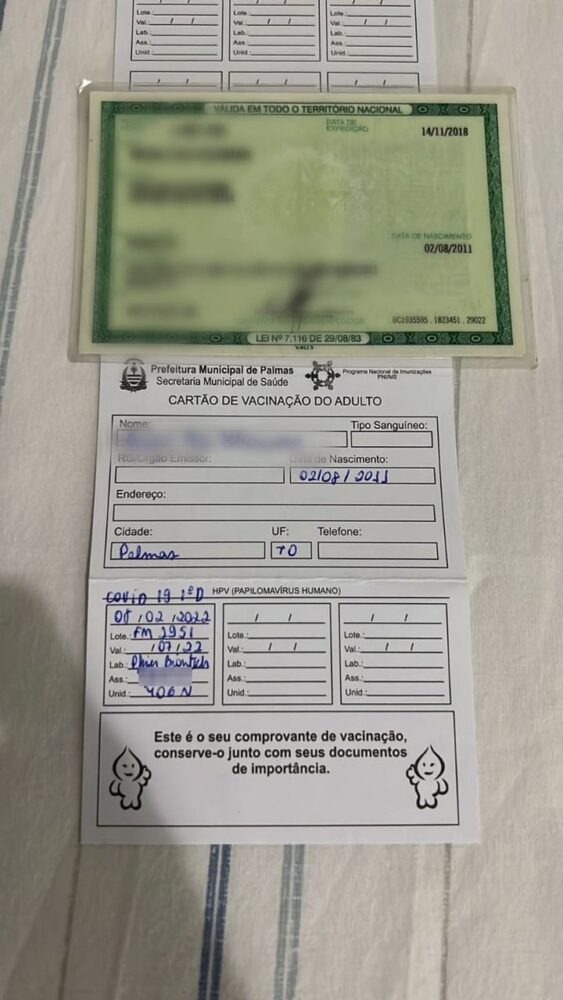 Lote:
Val.: / /
Lab.:
Ass.:
Unid.:
Lote:
Val.: / /
Lab.:
Ass.:
Unid.:
Lote:
Val.: / /
Lab.:
Ass.:
Unid.:
/ /
/ /
/ /
VÁLIDA EM TODO O TERRITÓRIO NACIONAL
DATA DE EXPEDIÇÃO 14/11/2018
DATA DE NASCIMENTO
02/08/2011
BC1935595 . 1823451 . 29022
LEI Nº 7.116 DE 29/08/83
Prefeitura Municipal de Palmas
Secretaria Municipal de Saúde
Programa Nacional de Imunizações
PNI/MS
CARTÃO DE VACINAÇÃO DO ADULTO
Nome:
Tipo Sanguíneo:
RG/Órgão Emissor:
Data de Nascimento:
02/08/2011
Endereço:
Cidade:
UF:
Telefone:
Palmas
TO
COVID 19 1ªD
HPV (PAPILOMAVÍRUS HUMANO)
/02/2022
Lote: FM 2951
Val.: /07/22
Lab.:
Ass.:
Unid.:
/ /
Lote:
Val.: / /
Lab.:
Ass.:
Unid.:
/ /
Lote:
Val.: / /
Lab.:
Ass.:
Unid.:
Este é o seu comprovante de vacinação,
conserve-o junto com seus documentos
de importância.